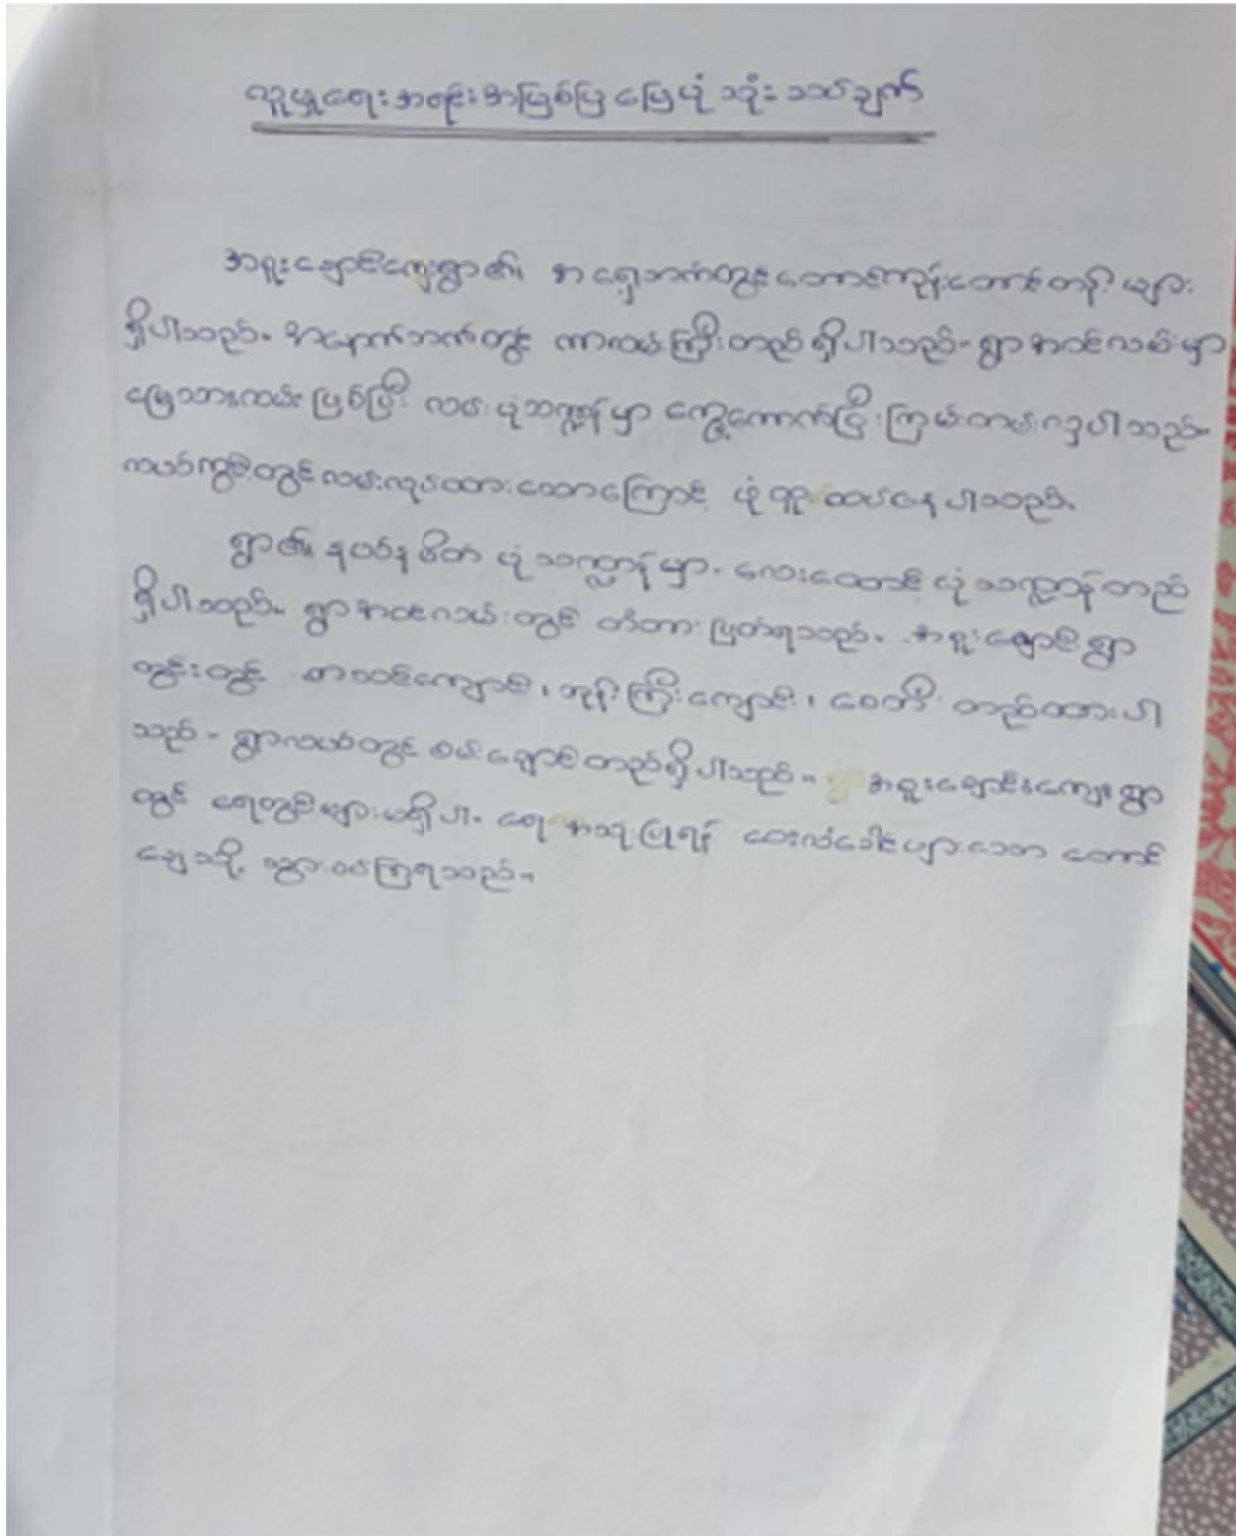 လူမှုရေးအစည်းအဖြစ်ပြ မြေပုံ သုံးသပ်ချက်
အရူးချောင်းကျေးရွာ၏ အရှေ့ဘက်တွင် တောင်ကုန်းတောင်တန်းများ
ရှိပါသည်။ အနောက်ဘက်တွင် ကားလမ်းကြီးတည် ရှိပါသည်။ ရွာအဝင်လမ်းမှာ
မြေသားလမ်းဖြစ်ပြီး လမ်းပုံသဏ္ဌန်မှာ ကွေ့ကောက်ပြီး ကြမ်းတမ်းလှပါသည်။
လယ်ကွင်းတွင် လမ်းလုပ်ထားသောကြောင့် ပုံတူ ထပ်နေပါသည်။
ရွာ၏ နယ်နမိတ် ပုံသဏ္ဌာန်မှာ လေးထောင့်ပုံသဏ္ဌာန်တည်
ရှိပါသည်။ ရွာအဝင်လမ်းတွင် တံတားဖြတ်ရသည်။ အရူးချောင်းရွာ
တွင်းတွင် စာသင်ကျောင်း၊ ဘုန်းကြီးကျောင်း၊ စေတီ တည်ထားပါ
သည်။ ရွာလယ်တွင် စမ်းချောင်းတည်ရှိပါသည်။ အရူးချောင်းကျေးရွာ
တွင် ရေတွင်းများမရှိပါ။ ရေအသုံးပြုရန် ဝေးလံခေါင်ဖျားသော တောင်
ချေသို့ သွားခပ်ကြရသည်။